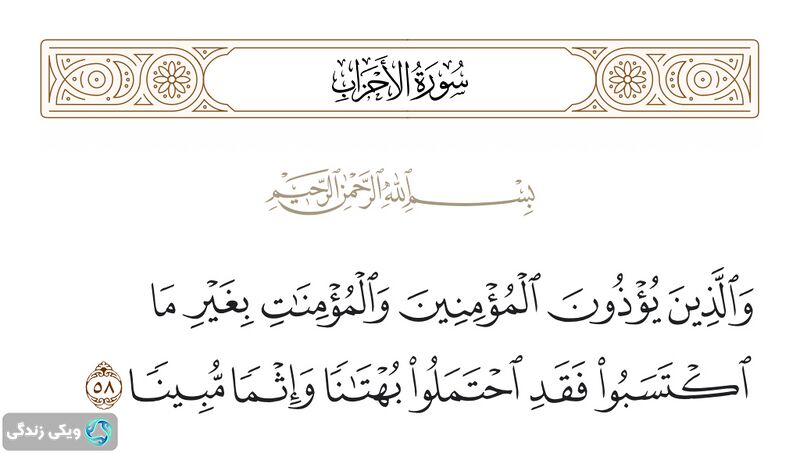 سُورَةُ الأَحْزَابِ
بِسْمِ ٱللَّهِ ٱلرَّحْمَٰنِ ٱلرَّحِيمِ
وَٱلَّذِينَ يُؤْذُونَ ٱلْمُؤْمِنِينَ وَٱلْمُؤْمِنَٰتِ بِغَيْرِ مَا
ٱكْتَسَبُوا۟ فَقَدِ ٱحْتَمَلُوا۟ بُهْتَٰنًا وَإِثْمًا مُّبِينًا ٥٨
ویکی زندگی